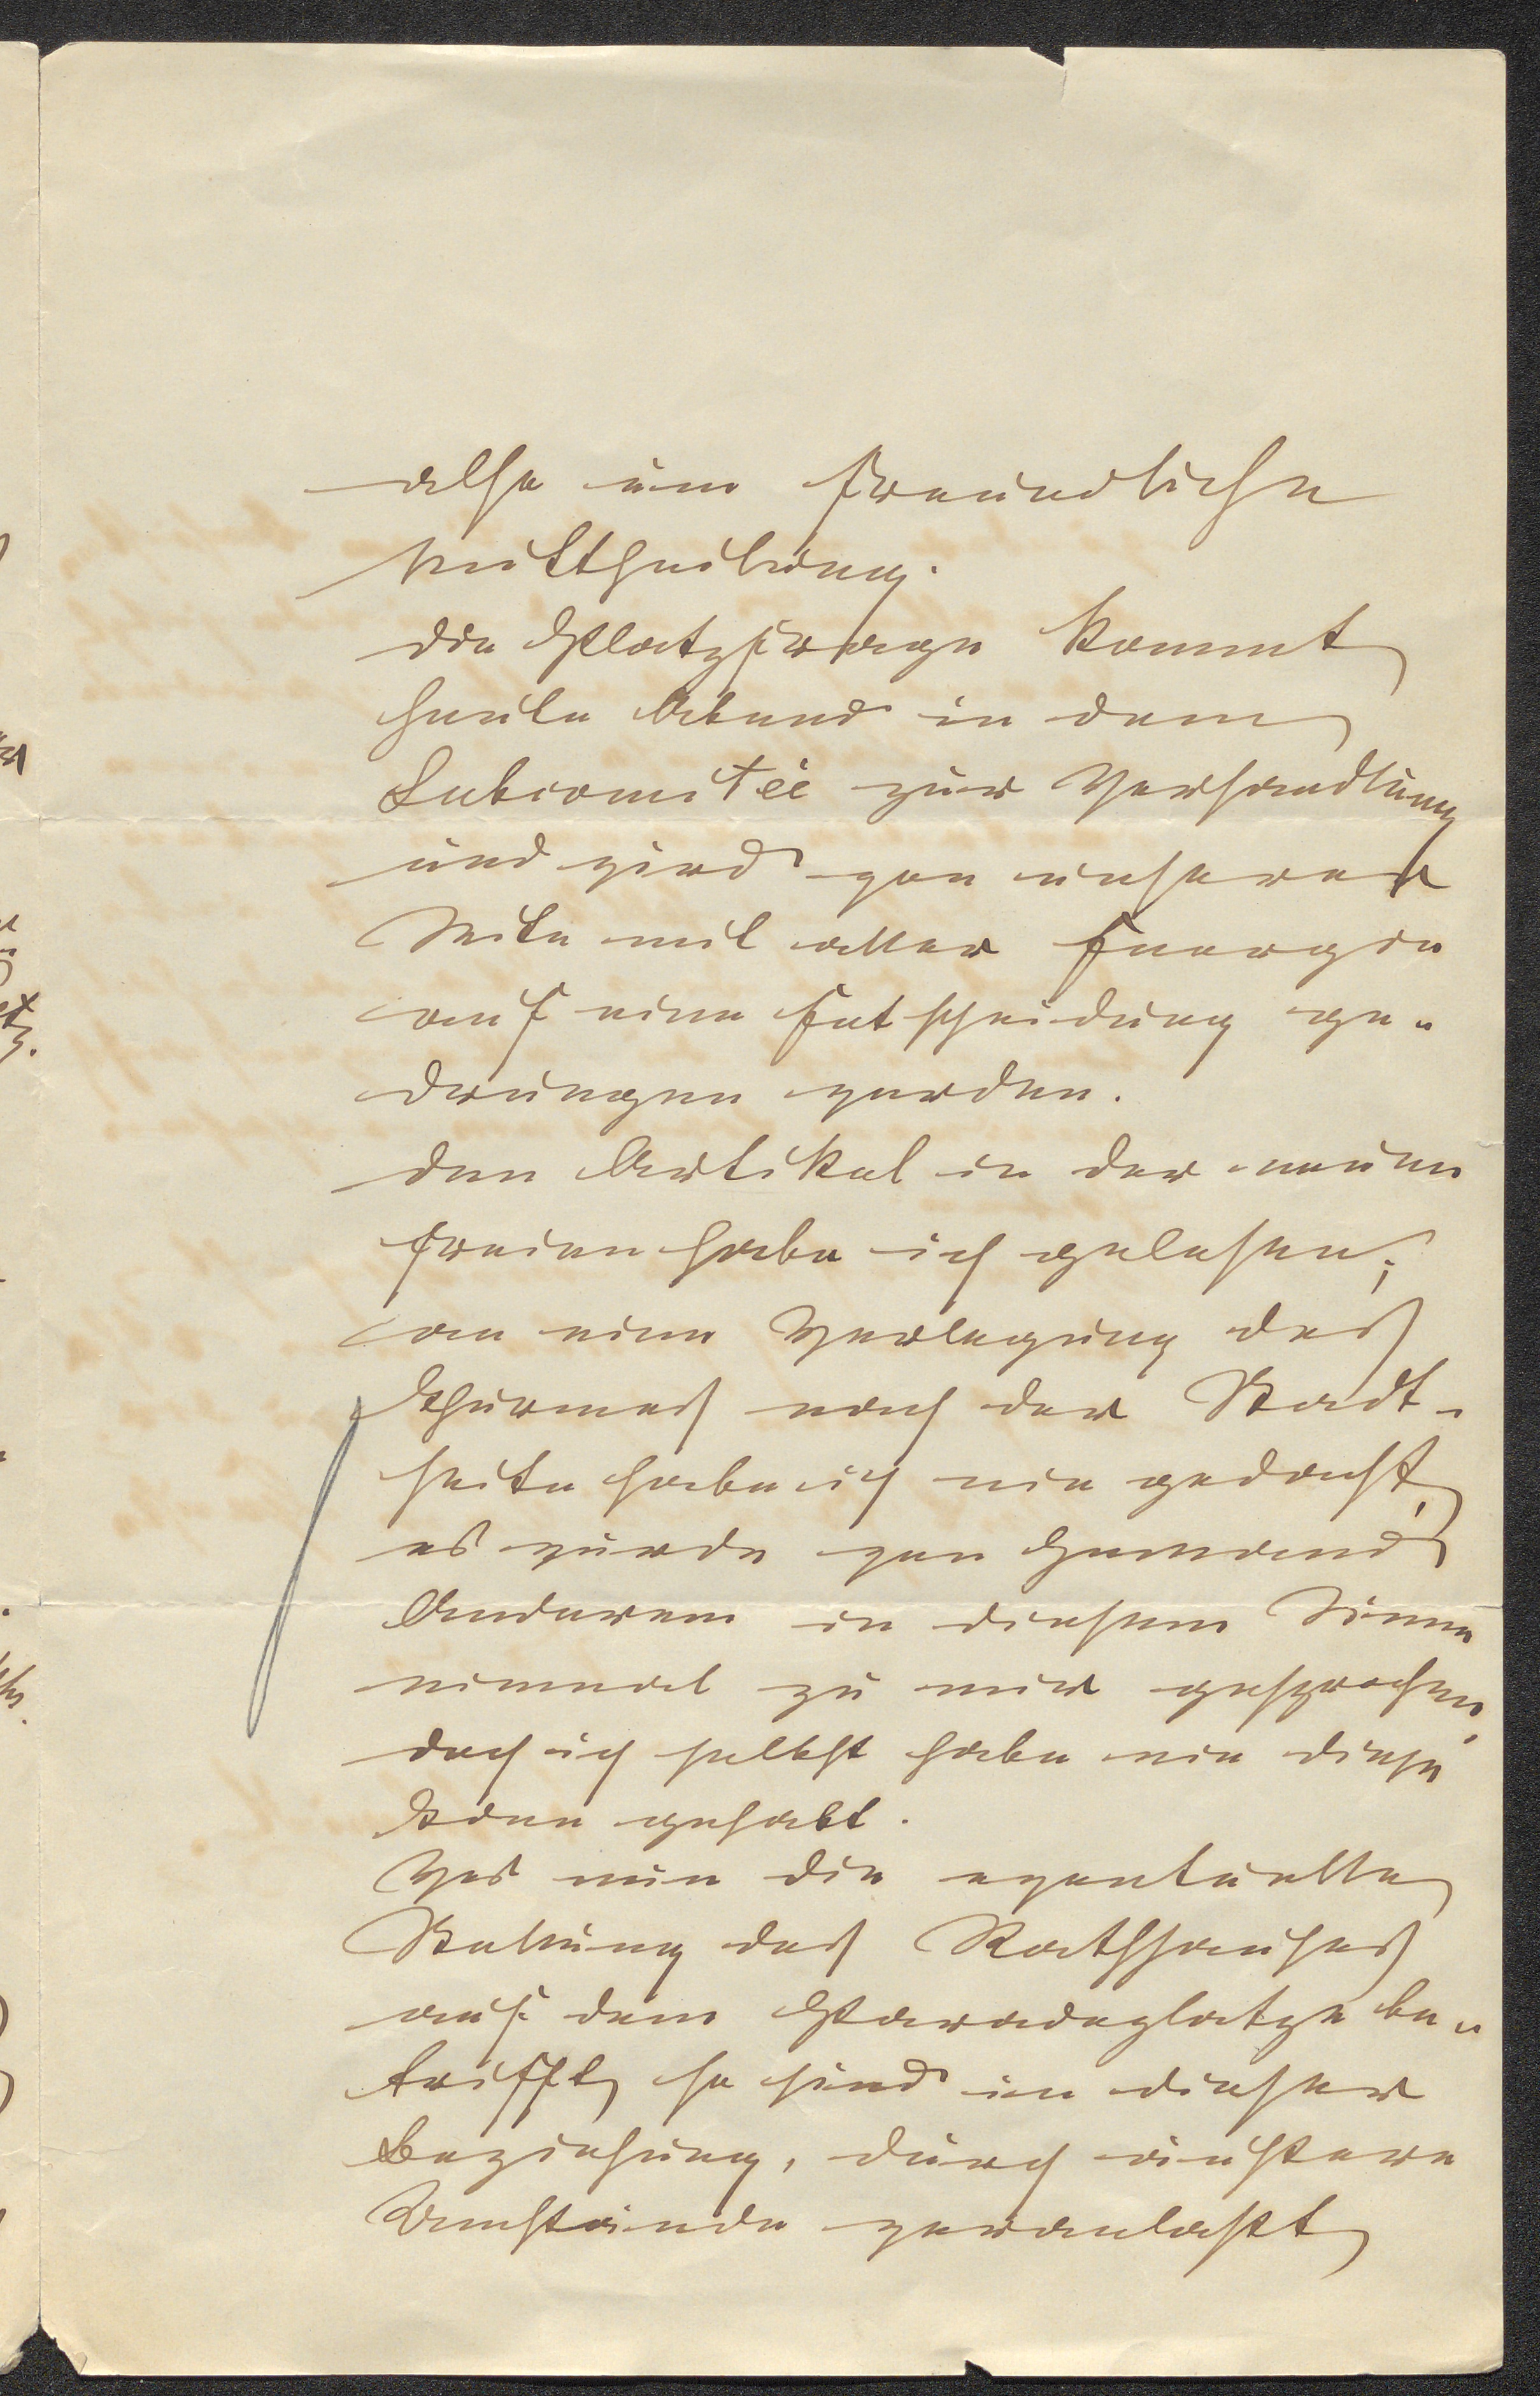 also um freundliche
Mittheilung.
Die Platzfrage kommt
heute Abend in dem
Subcomitée zur Verhandlung
und wird von unserer
Seite mit aller Energie
auf eine Entscheidung ge-
drungen werden.
Den Artikel in der neuen
freien habe ich gelesen;
an eine Verlegung des
Thurmes nach der Stadt-
seite habe ich nie gedacht,
es wurde von Jemand
Anderem in diesem Sinne
einmal zu mir gesprochen,
doch ich selbst habe nie diese
Idee gehabt.
Was nun die eventuelle
Stellung des Rathhauses
auf dem Paradeplatze be-
trifft, so sind in dieser
Beziehung, durch äußere
Umstände veranlaßt